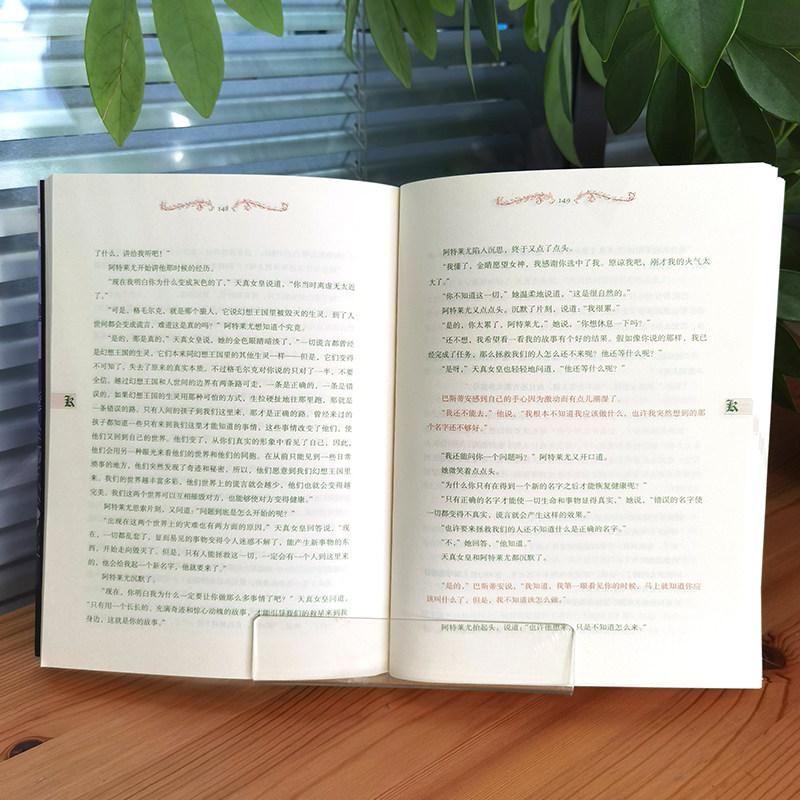 148
了什么，讲给我听吧！”
阿特莱尤开始讲他那时候的经历。
“现在我明白你为什么变成灰色的了，”天真女皇说道，“你当时离虚无太近
了。”
“可是，格毛尔克，就是那个狼人，它说幻想王国里被毁灭的生灵，到了人
世间都会变成谎言，难道这是真的吗？”阿特莱尤想知道个究竟。
“是的，那是真的，”天真女皇说，她的金色眼睛暗淡了，“一切谎言都曾经
是幻想王国的生灵，它们本来同幻想王国里的其他生灵一样——但是，它们变得
不可知了，失去了原来的真实本质。不过格毛尔克对你说的只对了一半，不要
全信。越过幻想王国和人世间的边界有两条路可走，一条是正确的，一条是错
误的。如果幻想王国的生灵用那种可怕的方式，生拉硬扯地往那里跑，那就是
一条错误的路。只有人间的孩子到我们这里来，那才是正确的路。曾经来过的
孩子都知道一些只有来到我们这里才能知道的事情，这些事情改变了他们，使
他们又回到自己的世界。他们变了，从你们真实的形象中看见了自己，因此，
他们会用另一种眼光来看他们的世界和他们的同胞。在从前只能见到一些日常
琐事的地方，他们突然发现了奇迹和秘密，所以，他们愿意到我们幻想王国里
来。我们的世界越丰富多彩，他们世界上的谎言就会越少，他们也就会变得越
完美。我们这两个世界可以互相摧毁对方，也能够使对方变得健康。”
阿特莱尤思索片刻，又问道：“问题到底是怎么开始的呢？”
“出现在这两个世界上的灾难也有两方面的原因，”天真女皇回答说，“现
在，一切都乱套了，显而易见的事物变得令人迷惑不解了，能产生新事物的东
西，开始走向毁灭了。但是，只有人能拯救这一切，一定会有一个人到这里来
的，他会给我起一个新名字，他就要来了。”
阿特莱尤沉默了。
“现在，你明白我为什么一定要让你做那么多事情了吧？”天真女皇问道，
“只有用一个长长的、充满奇迹和惊心动魄的故事，才能引导我们的救星来到我
身边，这就是你的故事。”
K
149
阿特莱尤陷入沉思，终于又点了点头。
“我懂了，金睛愿望女神，我感谢你选中了我。原谅我吧，刚才我的火气太
大了。”
“你不知道这一切，”她温柔地说道，“这是很自然的。”
阿特莱尤又点点头，沉默了片刻，说道：“我很累。”
“是的，你太累了，阿特莱尤，”她说，“你想休息一下吗？”
“还不想，我希望看一看我的故事有个好的结果。假如像你说的那样，我已
经完成了任务，那么拯救我们的人怎么还不来呢？他还等什么呢？”
“是呀，”天真女皇也轻轻地问道，“他还等什么呢？”
巴斯蒂安感到自己的手心因为激动而有点儿潮湿了。
“我还不能去，”他说，“我根本不知道我应该做什么。也许我突然想到的那
个名字还不够好。”
“我还能问你一个问题吗？”阿特莱尤又开口道。
她微笑着点点头。
“为什么你只有在得到一个新的名字之后才能恢复健康呢？”
“只有正确的名字才能使一切生命和事物显得真实，”她说，“错误的名字使
一切都变得不真实，谎言就会产生这样的效果。”
“也许要来拯救我们的人还不知道什么是正确的名字。”
“不，”她回答，“他知道。”
天真女皇和阿特莱尤都沉默了。
“是的，”巴斯蒂安说，“我知道，我第一眼看见你的时候，马上就知道你应
该叫什么了。但是，我不知道该怎么做。”
阿特莱尤抬起头，说道：“也许他想来，只是不知道怎么来。”
K